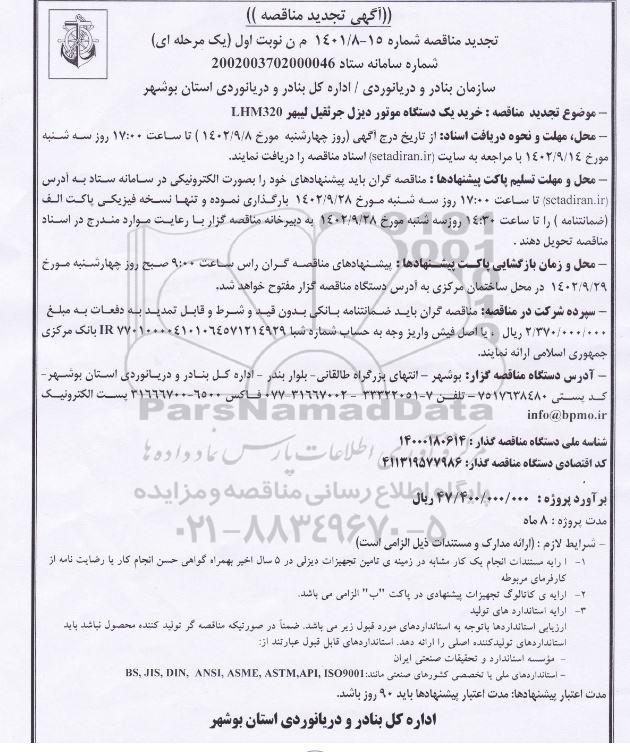 ((آگهی تجدید مناقصه))
تجدید مناقصه شماره ۱۵-۱۴۰۱/۸ م ن نوبت اول (یک مرحله ای)
شماره سامانه ستاد 2002003702000046
سازمان بنادر و دریانوردی / اداره کل بنادر و دریانوردی استان بوشهر
– موضوع تجدید مناقصه : خرید یک دستگاه موتور دیزل جرثقیل لیبهر LHM320
– محل، مهلت و نحوه دریافت اسناد: از تاریخ درج آگهی (روز چهارشنبه مورخ ۱۴۰۲/۹/۸ ) تا ساعت ۱۷:۰۰ روز سه شنبه
مورخ ۱۴۰۲/۹/۱۴ با مراجعه به سایت (setadiran.ir) اسناد مناقصه را دریافت نمایند.
– محل و مهلت تسلیم پاکت پیشنهادها : مناقصه گران باید پیشنهادهای خود را بصورت الکترونیکی در سامانه ستاد به آدرس
(setadiran.ir) تا ساعت ۱۷:۰۰ روز سه شنبه مورخ ۱۴۰۲/۹/۲۸ بارگذاری نموده و تنها نسخه فیزیکی پاکت الف
(ضمانتنامه ) را تا ساعت ۱۴:۳۰ روز سه شنبه مورخ ۱۴۰۲/۹/۲۸ به دبیرخانه مناقصه گزار با رعایت موارد مندرج در اسناد
مناقصه تحویل دهند .
– محل و زمان بازگشایی پاکت پیشنهادها : پیشنهادهای مناقصه گران راس ساعت ۹:۰۰ صبح روز چهارشنبه مورخ
۱۴۰۲/۹/۲۹ در محل ساختمان مرکزی به آدرس دستگاه مناقصه گزار مفتوح خواهد شد.
– سپرده شرکت در مناقصه: مناقصه گران باید ضمانتنامه بانکی بدون قید و شرط و قابل تمدید به دفعات به مبلغ
۲/۳۷۰/۰۰۰/۰۰۰ ریال ، یا اصل فیش واریز وجه به حساب شماره شبا IR ۷۷۰۱۰۰۰۰۴۱۰۱۰۶۴۵۷۱۲۱۴۹۲۹ بانک مرکزی
جمهوری اسلامی ارائه نمایند.
– آدرس دستگاه مناقصه گزار: بوشهر – انتهای بزرگراه طالقانی- بلوار بندر - اداره کل بنادر و دریانوردی استان بوشهر-
کد پستی ۷۵۱۷۶۳۸۴۸۰ – تلفن ۷-۳۳۳۲۲۰۵۱ – ۳۱۶۶۷۰۰۲-۰۷۷ فاکس ۶۵۰۰-۳۱۶۶۶۷۰۰ پست الکترونیک
info@bpmo.ir
شناسه ملی دستگاه مناقصه گذار : ۱۴۰۰۰۱۸۰۶۱۴
کد اقتصادی دستگاه مناقصه گذار: ۴۱۱۳۱۹۵۷۷۹۸۶
برآورد پروژه : ۴۷/۴۰۰/۰۰۰/۰۰۰ ریال
مدت پروژه : ۸ ماه
– شرایط لازم : (ارائه مدارک و مستندات ذیل الزامی است)
۱- ارایه مستندات انجام یک کار مشابه در زمینه ی تامین تجهیزات دیزلی در ۵ سال اخیر بهمراه گواهی حسن انجام کار یا رضایت نامه از
کارفرمای مربوطه
۲- ارایه ی کاتالوگ تجهیزات پیشنهادی در پاکت "ب" الزامی می باشد.
۳- ارایه استاندارد های تولید
ارزیابی استانداردها باتوجه به استانداردهای مورد قبول زیر می باشد. ضمناً در صورتیکه مناقصه گر تولید کننده محصول نباشد باید
استانداردهای تولیدکننده اصلی را ارائه دهد. استانداردهای قابل قبول عبارتند از:
– مؤسسه استاندارد و تحقیقات صنعتی ایران
– استانداردهای ملی یا تخصصی کشورهای صنعتی مانند: BS, JIS, DIN, ANSI, ASME, ASTM,API, ISO9001
مدت اعتبار پیشنهادها: مدت اعتبار پیشنهادها باید ۹۰ روز باشد.
اداره کل بنادر و دریانوردی استان بوشهر
ParsNamadData
مرکز فرآوری اطلاعات پارس نماد داده ها
پایگاه اطلاع رسانی مناقصه و مزایده
۰۲۱-۸۸۳۴۹۶۷۰-۵